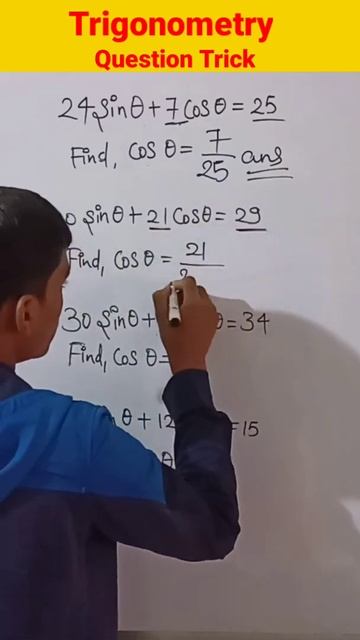 Trigonometry
Question Trick
24 sinθ + 7 cosθ = 25
Find, cosθ = 7/25 ans
sinθ + 21 cosθ = 29
Find, cosθ = 21
30 sinθ + θ = 34
Find, cosθ =
θ + 12 = 15
θ